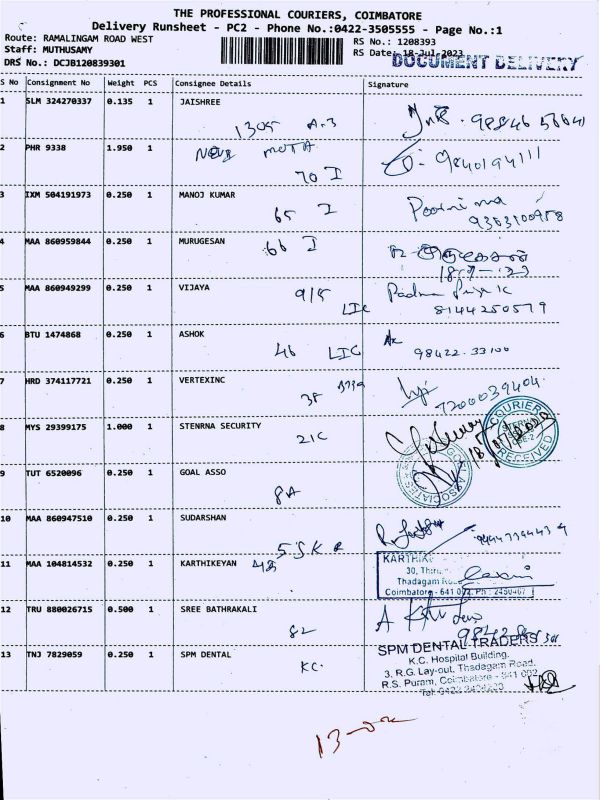 THE PROFESSIONAL COURIERS, COIMBATORE
Delivery Runsheet - PC2 - Phone No.:0422-3505555 - Page No.:1
Route: RAMALINGAM ROAD WEST
RS No.: 1208393
Staff: MUTHUSAMY
RS Date: 18-Jul-2023
DOCUMENT DELIVERY
DRS No.: DCJB120839301
S No Consignment No Weight PCS Consignee Details Signature
1 SLM 324270337 0.135 1 JAISHREE
1305 A-3
2 PHR 9338 1.950 1
70 I 9840194111
3 IXM 504191973 0.250 1 MANOJ KUMAR
65 I Poornima
9363100958
4 MAA 860959844 0.250 1 MURUGESAN
66 I
5 MAA 860949299 0.250 1 VIJAYA
LIC 8144250579
6 BTU 1474868 0.250 1 ASHOK
46 LIC 98422-33100
7 HRD 374117721 0.250 1 VERTEXINC
7200039404
8 MYS 29399175 1.000 1 STENRNA SECURITY
21C
COURIER
RECEIVED
9 TUT 6520096 0.250 1 GOAL ASSO
8A
ASSOCIATES
10 MAA 860947510 0.250 1 SUDARSHAN
11 MAA 104814532 0.250 1 KARTHIKEYAN
KARTHIK
30,
Thadagam Road
Coimbatore - 641 002. Ph : 2450467
12 TRU 880026715 0.500 1 SREE BATHRAKALI
82
13 TNJ 7829059 0.250 1 SPM DENTAL
KC.
SPM DENTAL TRADERS
K.C. Hospital Building,
3, R.G. Lay-out, Thadagam Road,
R.S. Puram, Coimbatore - 641 002